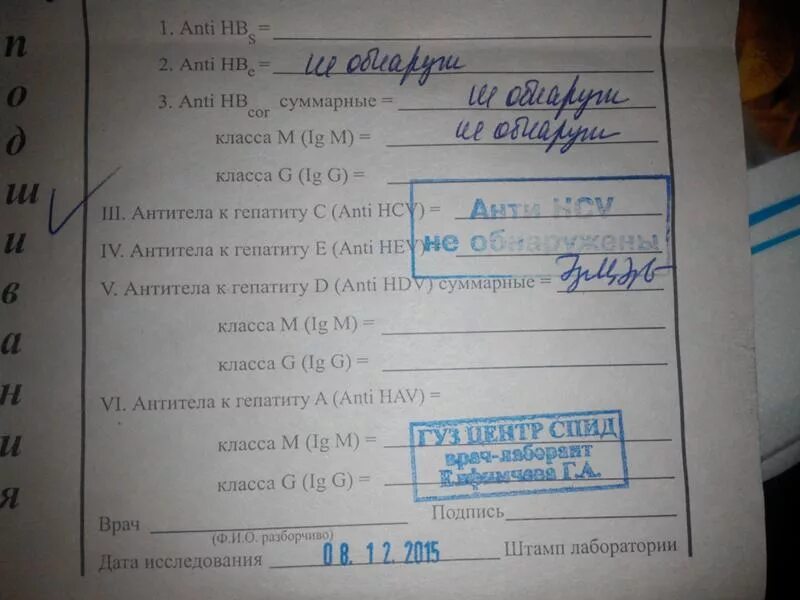 подшивания
1. Anti HBs =
2. Anti HBe = не обнаруж
3. Anti HBcor суммарные = не обнаруж
класса M (Ig M) = не обнаруж
класса G (Ig G) =
III. Антитела к гепатиту C (Anti HCV) = Анти HCV
IV. Антитела к гепатиту E (Anti HEV) не обнаружены
V. Антитела к гепатиту D (Anti HDV) суммарные =
класса M (Ig M) =
класса G (Ig G) =
VI. Антитела к гепатиту A (Anti HAV) =
класса M (Ig M) =
класса G (Ig G) =
ГУЗ ЦЕНТР СПИД
врач-лаборант
Ефимчева Г.А.
Врач Подпись
(Ф.И.О. разборчиво)
Дата исследования 08. 12. 2015 Штамп лаборатории